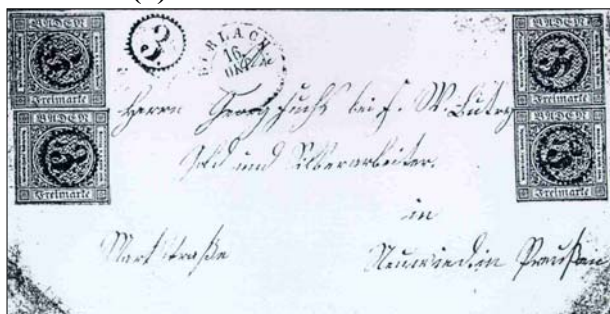 BADEN
3
Freimarke
BADEN
3
Freimarke
3
16
OKT
BADEN
3
Freimarke
BADEN
Freimarke
Herrn Georg Fuchs bei F. W.
Gold und Silberarbeiter.
in
Marktstraße
Neuwied in Preußen